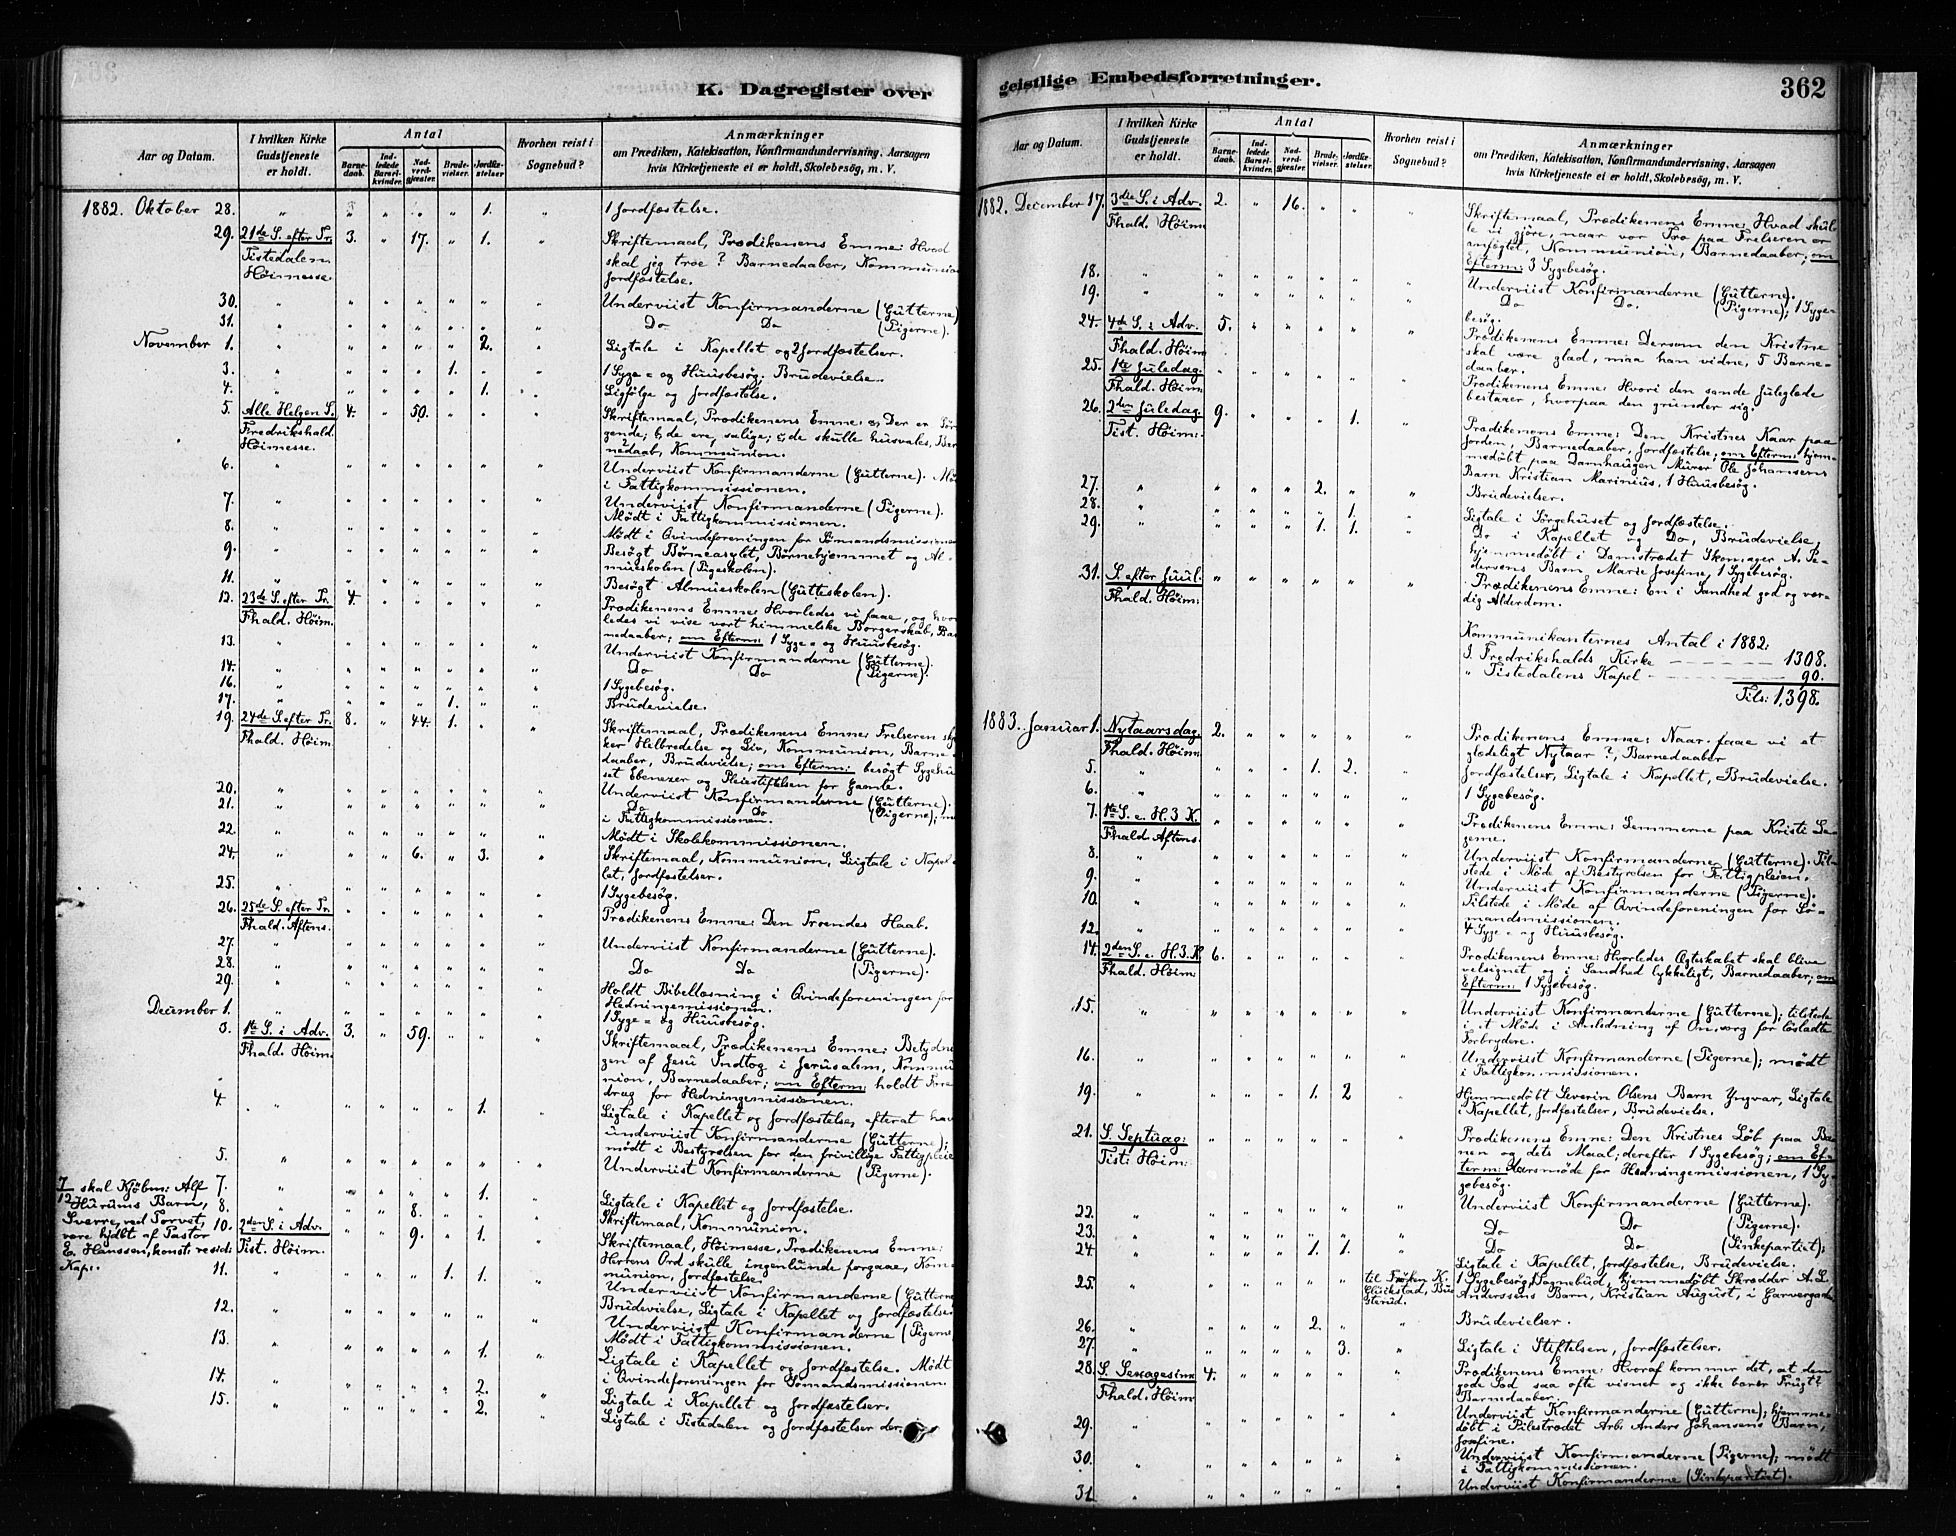 K. Dagregister over
Aar og Datum.
I hvilken Kirke Gudstjeneste er holdt.
Antal
Barnedaab.
Indledede Barselkvinder.
Nadverdgjæster.
Brudevielser.
Jordfæstelser
Hvorhen reist i Sognebud?
Anmærkninger
om Prædiken, Katekisation, Konfirmandundervisning, Aarsagen
hvis Kirketjeneste ei er holdt, Skolebesøg, m. V.
1882. Oktober 28. " " " " " 1. " 1 Jordfæstelse.
29. 21de S. efter Tr. 3. " 17. " 1. Skriftemaal, Prædikenens Emne: Hvad
Tistedalen skal jeg troe? Barnedaaber, Kommunion
Höimesse. Jordfæstelse.
30. " " " " " " " Underviist Konfirmanderne (Gutterne)
31. " " " " " " " Do Do (Pigerne).
November 1. " " " " " 2. " Ligtale i Kapellet og 2 Jordfæstelser.
3. " " " " 1. " " 1 Syge= og Huusbesøg, Brudevielse.
4. " " " " " 1. " Ligfølge og Jordfæstelse.
5. Alle Helgen S. 4. " 50. " " " Skriftemaal, Prædikenens Emne: a, Der er Sør
Fredrikshald. gende; b, de ere salige; c, de skulle husvales, Bar
Höimesse. nedaab, Kommunion.
6. " " " " " " " Underviist Konfirmanderne (Gutterne). Mö
i Fattigkommissionen.
7. " " " " " " " Underviist Konfirmanderne (Pigerne).
Mödt i Fattigkommissionen.
8. " " " " " " " Mödt i Qvindeforeningen for Sømandsmissionen
9. " " " " " " " Besögt Börneasylet, Börnehjemmet og Al=
mueskolen (Pigeskolen).
11. " " " " " " " Besögt Almueskolen (Gutteskolen).
12. 23de S. efter Tr. 4. " " " " " Prædikenens Emne: Hvorledes vi faae, og hvor
Fhald. Höim. ledes vi vise vort himmelske Borgerskab, Bar
nedaaber; om Efterm: 1 Syge= og Huusbesøg.
13. " " " " " " " Underviist Konfirmanderne (Gutterne).
14. " " " " " " " Do Do (Pigerne).
16. " " " " " " " 1 Sygebesøg.
17. " " " " 1. " " Brudevielse.
19. 24de S. efter Tr. 8. " 44. 1. " " Skriftemaal, Prædikenens Emne: Frelseren sky
Fhald. Höim. ker Helbredelse og Liv, Kommunion, Barne=
daaber, Brudevielse; om Efterm: besögt Sygehu
set Ebenezer og Pleiestiftelsen for Gamle.
20. " " " " " " " Underviist Konfirmanderne (Gutterne).
21. " " " " " " " Do Do (Pigerne); m
i Fattigkommissionen.
22. " " " " " " " Mödt i Skolekommissionen.
24. " " " 6. " 3. " Skriftemaal, Kommunion, Ligtale i Kapel
let, Jordfæstelser.
25. " " " " " " " 1 Sygebesøg.
26. 25de S. efter Tr. " " " " " " Prædikenens Emne: Den Troendes Haab.
Fhald. Aftens.
27. " " " " " " " Underviist Konfirmanderne (Gutterne).
28. " " " " " " " Do Do (Pigerne).
29. " " " " " " " Holdt Bibellæsning i Qvindeforeningen for
Hedningemissionen.
December 1. " " " " " " " 1 Syge= og Huusbesøg.
3. 1ste S. i Adv. 3. " 59. " " " Skriftemaal, Prædikenens Emne: Betydnin
Fhald. Höim. gen af Jesu Indtog i Jerusalem, Kommu
nion, Barnedaaber; om Efterm: holdt Fore
drag for Hedningemissionen.
4. " " " " " 1. " Ligtale i Kapellet og Jordfæstelse, efterat have
underviist Konfirmanderne (Gutterne);
mödt i Bestyrelsen for den frivillige Fattigpleie
5. " " " " " " " Underviist Konfirmanderne (Pigerne).
7/12 skal Kjøbm: Alf
Hurums Barn,
Sverre, ved Torvet,
være hjdbt af Pastor
E. Hanssen, konst. resid:
Kap:.
7. " " " " " 1. " Ligtale i Kapellet og Jordfæstelse.
8. " " " 8. " " " Skriftemaal, Kommunion.
10. 2den S. i Adv. " " 9. " 1. " Skriftemaal, Höimesse, Prædikenens Emne:
Tist. Höim. Herrens Ord skulle ingenlunde forgaae, Kom=
munion, Jordfæstelse.
11. " " " " 1. 1. " Underviist Konfirmanderne (Gutterne
Brudevielse, Ligtale i Kapellet og Jordfæstelse
12. " " " " " " " Underviist Konfirmanderne (Pigerne
Mödt i Fattigkommissionen.
13. " " " " " 1. " Ligtale i Kapellet og Jordfæstelse. Mödt
i Qvindeforeningen for Sømandsmissionen.
14. " " " " " 2. " Ligtale i Kapellet og Jordfæstelser.
15. " " " " " 2. " Ligtale i Tistedalen og Jordfæstelser der.
geistlige Embedsforretninger.
362
Aar og Datum.
I hvilken Kirke Gudstjeneste er holdt.
Antal
Barnedaab.
Indledede Barselkvinder.
Nadverdgjæster.
Brudevielser.
Jordfæstelser.
Hvorhen reist i Sognebud?
Anmærkninger
om Prædiken, Katekisation, Konfirmandundervisning, Aarsagen
hvis Kirketjeneste ei er holdt, Skolebesøg, m. V.
1882. December 17. 3die S. i Adv. 2. " 16. " " " Skriftemaal, Prædikenens Emne: Hvad skul=
Fhald. Höim: le vi gjöre, naar vor Tro paa Frelseren er
anfægtet, Kommunion, Barnedaaber; om
Efterm: 3 Sygebesøg.
18. " " " " " " " Underviist Konfirmanderne (Gutterne).
19. " " " " " " " Do Do. (Pigerne), 1 Syge=
besøg.
24. 4de S. i Adv. 5. " " " " " Prædikenens Emne: Dersom den Kristne
Fhald. Höim: skal være glad, maa han vidne, 5 Barne=
daaber.
25. 1ste Juledag. " " " " " " Prædikenens Emne: Hvori den sande Juleglæde
Fhald. Höim: bestaaer, hvorpaa den grunder sig.
26. 2den Juledag. 9. " " " 1. " Prædikenens Emne: Den Kristnes Kaar paa
Tist. Höim: Jorden, Barnedaaber, Jordfæstelse; om Efterm: hjem=
medöbt paa Damhaugen Murer Ole Johansens
Barn Kristian Marinius, 1 Huusbesøg.
27. " " " " 2. " " Brudevielser.
28. " " " " " 1. " Ligtale i Sørgehuset og Jordfæstelse.
29. " " " " 1. 1. " Do i Kapellet og Do, Brudevielse,
hjemmedöbt i Damstrædet Skomager A. Pe=
dersens Barn, Marie Josefine, 1 Sygebesøg.
31. S. efter Juul. " " " " " " Prædikenens Emne: En i Sandhed god og vær=
Fhald. Höim: dig Alderdom.
Kommunikanternes Antal i 1882:
I Fredrikshalds Kirke 1308.
" Tistedalens Kapel 90.
Tils: 1,398.
1883. Januar 1. Nytaarsdag. 2. " " " " " Prædikenens Emne: Naar faae vi et
Fhald. Höim: glædeligt Nytaar?, Barnedaaber
5. " " " " 1. 2. " Jordfæstelser, Ligtale i Kapellet, Brudevielse.
6. " " " " " " " 1 Sygebesøg.
7. 1ste S. e. H. 3 K. " " " " " " Prædikenens Emne: Lemmerne paa Kristi Le=
Fhald Aftens. geme.
8. " " " " " " " Underviist Konfirmanderne (Gutterne). Til=
stede i Möde af Bestyrelsen for Fattigpleien.
9. " " " " " " " Underviist Konfirmanderne (Pigerne).
10. " " " " " " " Tilstede i Möde af Qvindeforeningen for Sö=
mandsmissionen.
12. " " " " " " " 4 Syge= og Huusbesøg.
14. 2den S. e. H. 3 K. 6. " " " " " Prædikenens Emne: Hvorledes Ægteskabet skal blive
Fhald. Höim: velsignet og i Sandhed lykkeligt, Barnedaaber; om
Efterm: 1 Sygebesøg.
15. " " " " " " " Underviist Konfirmanderne (Gutterne); tilstede
i et Möde i Anledning af Omsorg for löslatte
Forbrydere.
16. " " " " " " " Underviist Konfirmanderne (Pigerne); mödt
i Fattigkommissionen.
19. " " " " 1. 2 " Hjemmedöbt Severin Olsens Barn Yngvar, Ligtale
i Kapellet, Jordfæstelser, Brudevielse.
21. S. Septuag: " " " " " " Prædikenens Emne: Den Kristnes Löb paa Ba=
Tist: Höim: nen og dets Maal; derefter 1 Sygebesøg; om Ef=
term: Aarsmöde for Hedningemissionen, 1 Sy=
gebesøg.
22. " " " " " " " Underviist Konfirmanderne (Gutterne).
23. " " " " " " " Do Do (Pigerne).
24. " " " " 1. 1. " Do Do (Sinkepartiet);
Ligtale i Kapellet, Jordfæstelse, Brudevielse.
25. " " " " " " til Fröken K. 1 Sygebesøg, 1 Sognebud, hjemmedöbt Skrædder A. L.
Glückstad, Bu= Anderssens Barn, Kristian August, i Garvergaden
sterud.
26. " " " " 2. " " Brudevielser.
27. " " " " " 3. " Ligtale i Stiftelsen, Jordfæstelser.
28. S. Sexagesima 4. " " " " " Prædikenens Emne: Hvoraf kommer det, at den
Fhald. Höim gode Sæd saa ofte visner og ikke bærer Frugt?
Barnedaaber.
29. " " " " " " " Underviist Konfirmanderne (Gutterne); hjemme=
döbt i Pilestrædet Arb: Anders Johansens Barn,
Josefine.
30. " " " " " " " Underviist Konfirmanderne (Pigerne); mödt
i Fattigkommissionen.
31 " " " " " " " Underviist Konfirmanderne (Sinkepartiet).